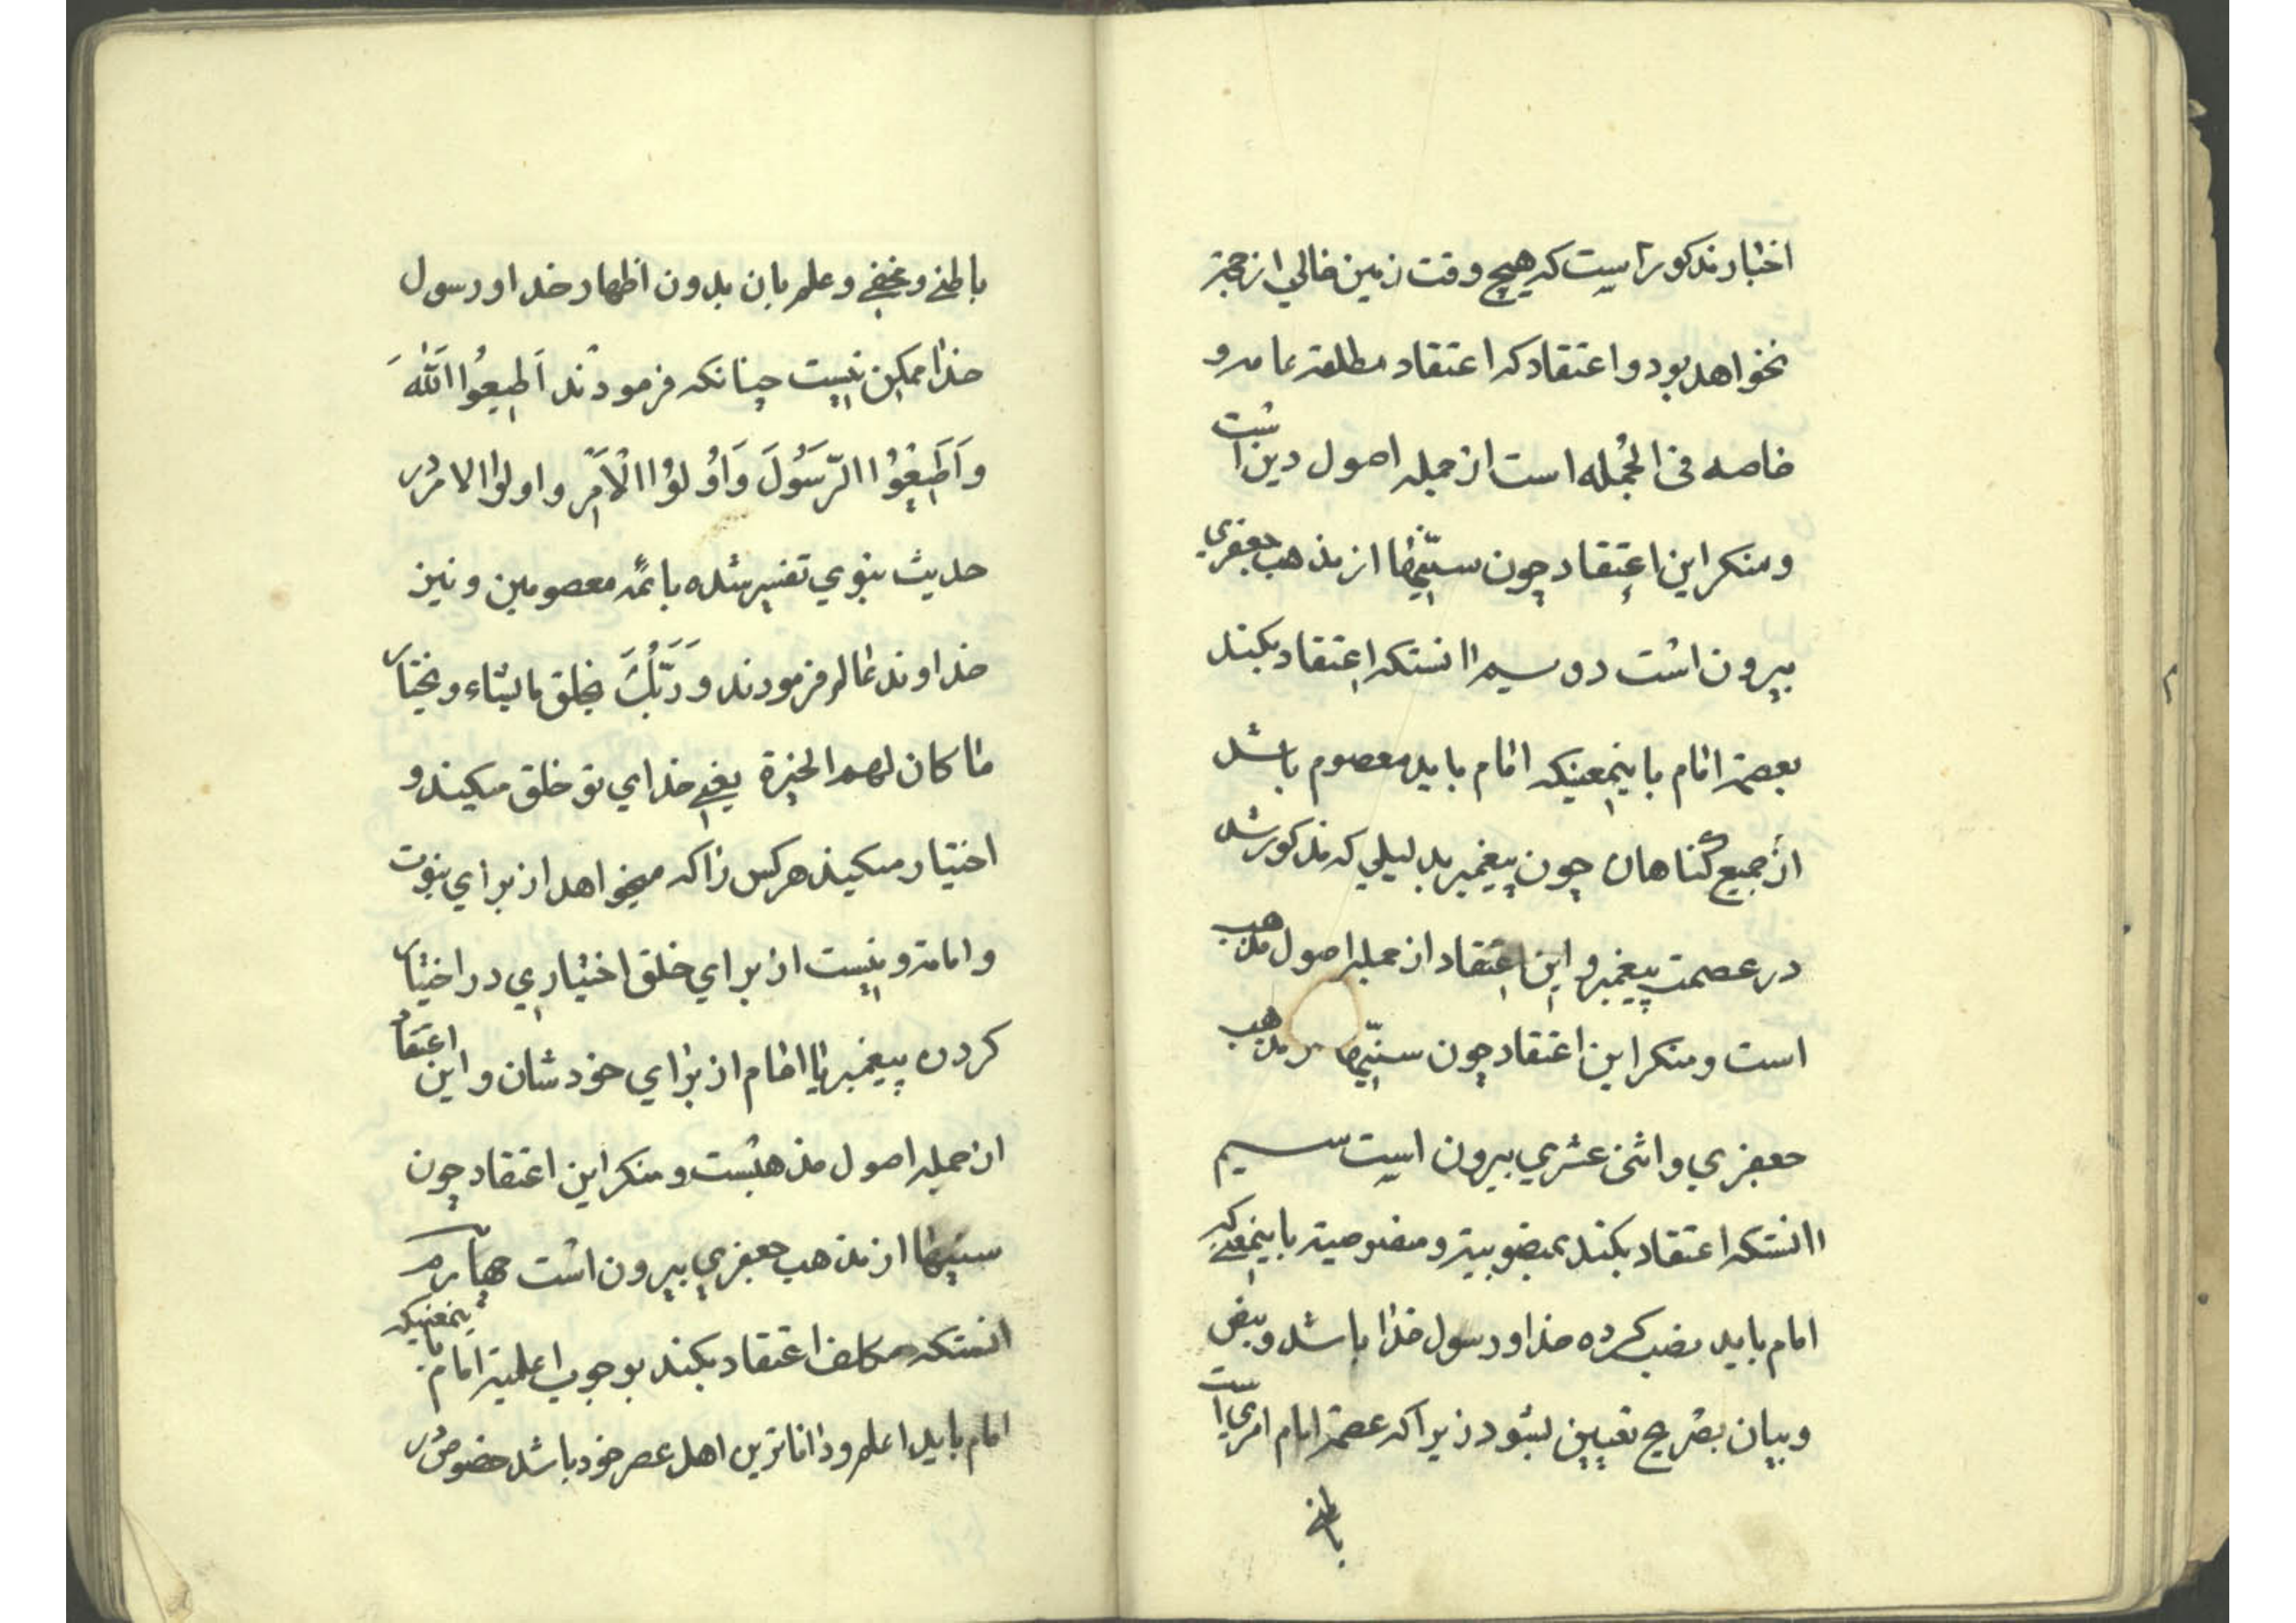 اخبار مذکور است که هیچ وقت زمین خالي از حجة
نخواهد بود و اعتقاد که اعتقاد مطلقه عامه و
خاصه فی الجُمله است از جمله اصول دین است
و منکر این اعتقاد چون سنّیها از مذهب جعفري
بیرون است دوسیم اانستکه اعتقاد بکند
بعصمة امام باینمعینکه امام باید معصوم باشد
از جمیع گناهان چون پیغمبر بدلیلي که مذکور شد
در عصمت پیغمبر و این اعتقاد از جمله اصول مذهب
است و منکر این اعتقاد چون سنّیها از مذهب
جعفري و اثنی عشري بیرون است سیم
اانستکه اعتقاد بکند بمنصوبیة و منصوصیة باینمعنی که
امام باید نصب کرده خدا و رسول خدا باشد و بنص
و بیان بصریح تعیین بشود زیرا که عصمة امام امري است
باطني
باطني و مخفي و علم بان بدون اظهار خدا و رسول
خدا ممکن نیست چنانکه فرمودند اَطیعُوا اللّٰهَ
وَاَطیعُوا الرَّسُولَ وَاُولُوا الْاَمْرِ و اولوا الامر در
حدیث نبوي تفسیر شده بائمّه معصومین و نیز
خداوند عالم فرمودند وَرَبُّكَ یخلق ما یشاء و یختار
ما کان لهم الخیرة یعني خداي تو خلق میکند و
اختیار میکند هر کس را که میخواهد از براي نبوت
و امامة و نیست از براي خلق اختیاري در اختیار
کردن پیغمبر یا امام از براي خودشان و این اعتقاد
از جمله اصول مذهبست و منکر این اعتقاد چون
سنیها از مذهب جعفري بیرون است چهارم
انستکه مکلف اعتقاد بکند بوجوب اعلمیة امام باینمعنیکه
امام باید اعلم و داناترین اهل عصر خود باشد خصوص در